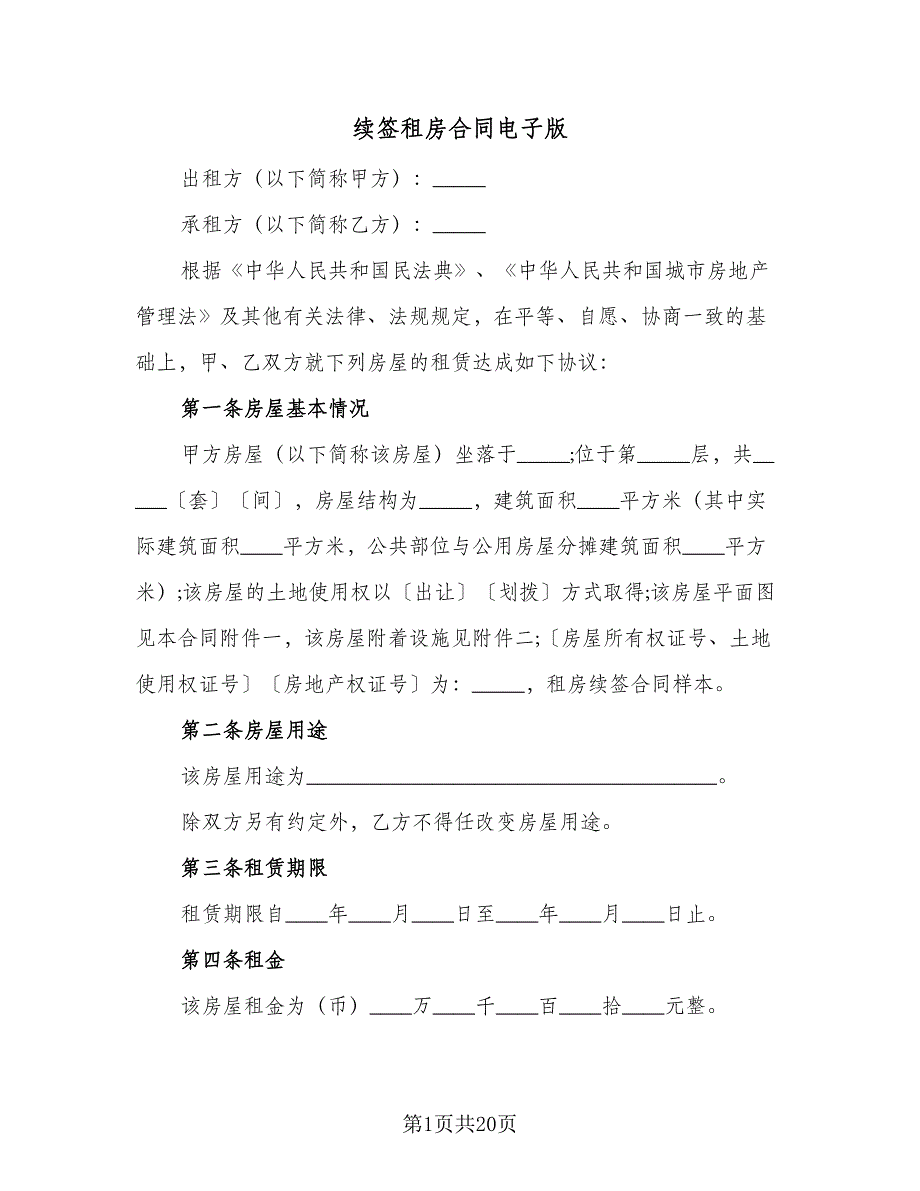 续签租房合同电子版
出租方（以下简称甲方）：_____
承租方（以下简称乙方）：_____
根据《中华人民共和国民法典》、《中华人民共和国城市房地产
管理法》及其他有关法律、法规规定，在平等、自愿、协商一致的基
础上，甲、乙双方就下列房屋的租赁达成如下协议：
第一条房屋基本情况
甲方房屋（以下简称该房屋）坐落于_____;位于第_____层，共__
___〔套〕〔间〕，房屋结构为_____，建筑面积____平方米（其中实
际建筑面积____平方米，公共部位与公用房屋分摊建筑面积____平方
米）;该房屋的土地使用权以〔出让〕〔划拨〕方式取得;该房屋平面图
见本合同附件一，该房屋附着设施见附件二;〔房屋所有权证号、土地
使用权证号〕〔房地产权证号〕为：_____，租房续签合同样本。
第二条房屋用途
该房屋用途为_______________________________________。
除双方另有约定外，乙方不得任改变房屋用途。
第三条租赁期限
租赁期限自____年____月____日至____年____月____日止。
第四条租金
该房屋租金为（币）____万____千____百____拾____元整。
第1页共20页